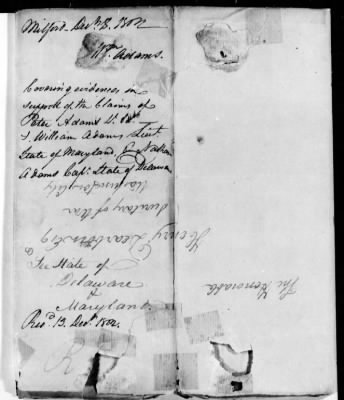 Milford. Decr. 8. 1802
Wm. Adams.
Covering evidences in
support of the Claims of
Peter Adams
& William Adams Lieut.
State of Maryland, & Nathan
Adams Capt. State of Delaware
See State of
Delaware
&
Maryland.
Recd. 13. Decr. 1802.
The Honorable
Henry Dearborn Esq
Secretary of War
Washington City